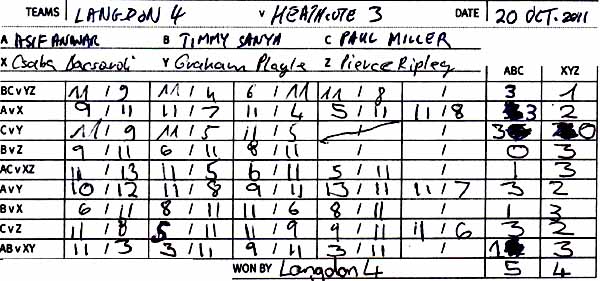 TEAMS LANGDON 4 V HEATHCOTE 3 DATE 20 OCT. 2011
A ASIF ANWAR B TIMMY SANYA C PAUL MILLER
X Csaba Y Graham Playle Z Pierce Ripley ABC XYZ
BCvYZ 11 / 9 11 / 4 6 / 11 11 / 8 / 3 1
AvX 9 / 11 11 / 7 11 / 4 5 / 11 11 / 8 3 2
CvY 11 / 9 11 / 5 11 / 5 / / 3 0
BvZ 9 / 11 6 / 11 8 / 11 / / 0 3
ACvXZ 11 / 13 11 / 5 6 / 11 5 / 11 / 1 3
AvY 10 / 12 11 / 8 9 / 11 13 / 11 11 / 7 3 2
BvX 6 / 11 8 / 11 11 / 6 8 / 11 / 1 3
CvZ 11 / 8 5 / 11 11 / 9 9 / 11 11 / 6 3 2
ABvXY 11 / 3 3 / 11 9 / 11 3 / 11 / 1 3
WON BY Langdon 4 5 4